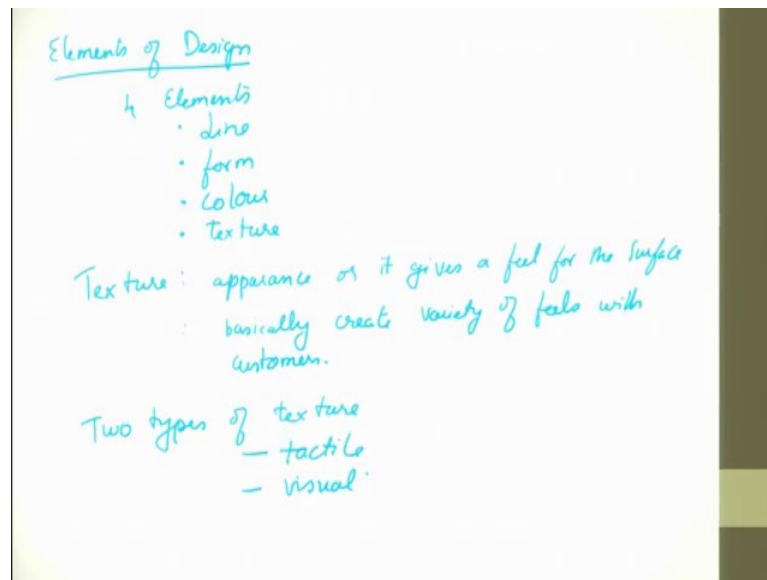 Elements of Design
4 Elements
• Line
• form
• colour
• Texture
Texture : apparance or it gives a feel for the surface
: basically create variety of feels with
customers.
Two types of texture
— tactile
— visual